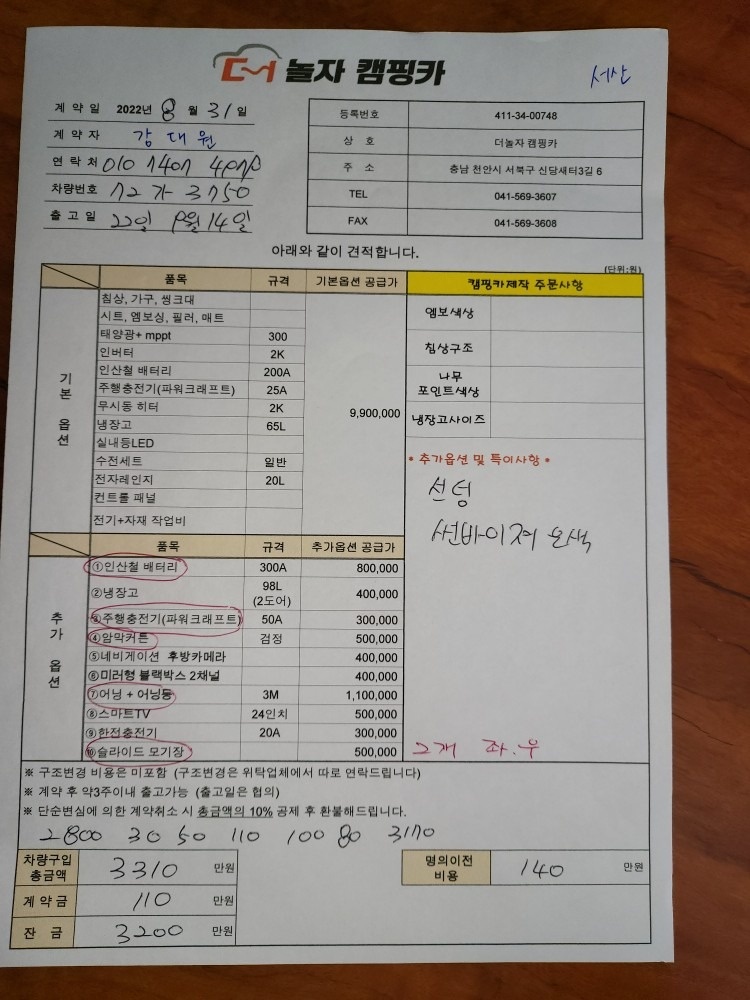 더 놀자 캠핑카
서산
계 약 일 2022년 8 월 31 일
계 약 자 김 대 원
연 락 처 010
차량번호 72 가 3750
출 고 일 22일 14일
등록번호 411-34-00748
상 호 더놀자 캠핑카
주 소 충남 천안시 서북구 신당새터3길 6
TEL 041-569-3607
FAX 041-569-3608
아래와 같이 견적합니다.
(단위:원)
품목 규격 기본옵션 공급가
기본 옵션
침상, 가구, 씽크대
시트, 엠보싱, 필러, 매트
태양광+ mppt 300
인버터 2K
인산철 배터리 200A
주행충전기(파워크래프트) 25A
무시동 히터 2K
9,900,000
냉장고 65L
실내등LED
수전세트 일반
전자레인지 20L
컨트롤 패널
전기+자재 작업비
캠핑카제작 주문사항
엠보색상
침상구조
나무
포인트색상
냉장고사이즈
* 추가옵션 및 특이사항 *
선팅
썬바이저
품목 규격 추가옵션 공급가
추가 옵션
①인산철 배터리 300A 800,000
②냉장고 98L (2도어) 400,000
③주행충전기(파워크래프트) 50A 300,000
④암막커튼 검정 500,000
⑤네비게이션 후방카메라 400,000
⑥미러형 블랙박스 2채널 400,000
⑦어닝 + 어닝등 3M 1,100,000
⑧스마트TV 24인치 500,000
⑨한전충전기 20A 300,000
⑩슬라이드 모기장 500,000 2개 좌.우
※ 구조변경 비용은 미포함 (구조변경은 위탁업체에서 따로 연락드립니다)
※ 계약 후 약3주이내 출고가능 (출고일은 협의)
※ 단순변심에 의한 계약취소 시 총금액의 10% 공제 후 환불해드립니다.
2800 30 50 110 100 80 3170
차량구입
총금액 3310 만원
명의이전
비용 140 만원
계 약 금 110 만원
잔 금 3200 만원